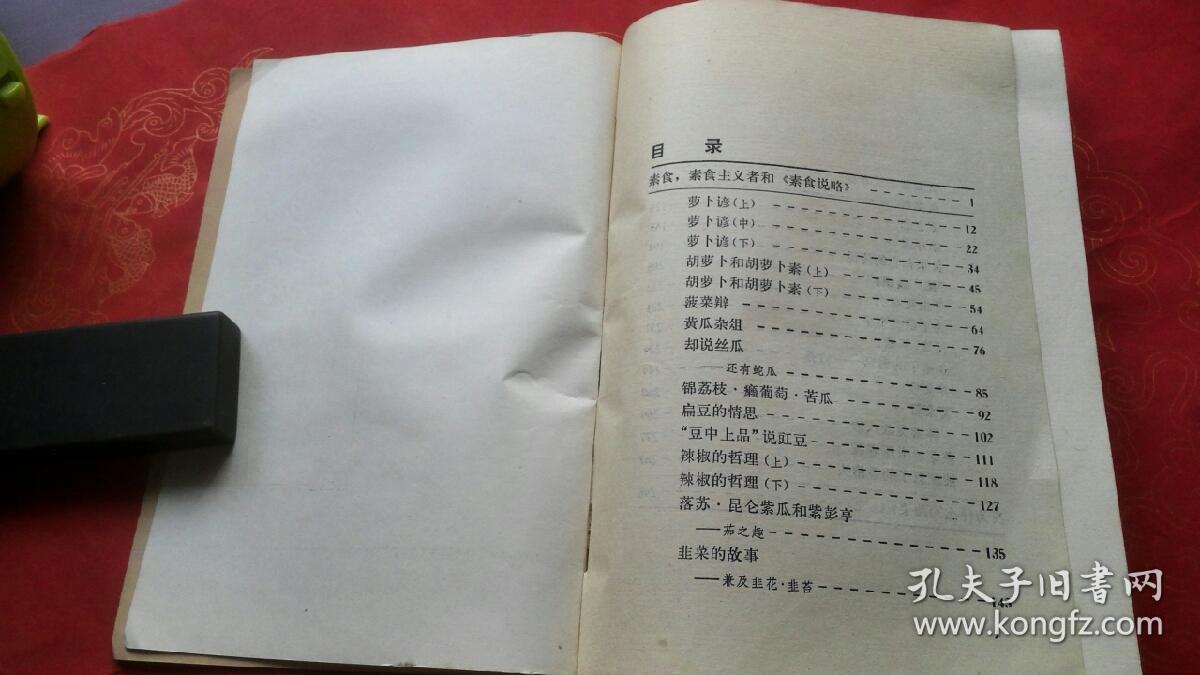 目 录
素食，素食主义者和《素食说略》 1
萝卜谚(上) 12
萝卜谚(中) 22
萝卜谚(下) 34
胡萝卜和胡萝卜素(上) 45
胡萝卜和胡萝卜素(下) 54
菠菜辩 64
黄瓜杂俎 76
却说丝瓜
——还有蛇瓜 85
锦荔枝·癞葡萄·苦瓜 92
扁豆的情思 102
“豆中上品”说豇豆 111
辣椒的哲理(上) 118
辣椒的哲理(下) 127
落苏·昆仑紫瓜和紫彭亨
——茄之趣 135
韭菜的故事
——兼及韭花·韭苔
孔夫子旧书网
www.kongfz.com